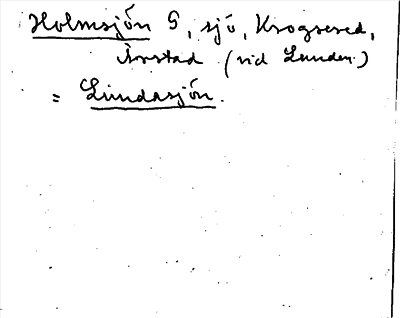 Holmsjön S, sjö, Krogsered,
Årstad (vid Lunden.)
= Lundasjön.